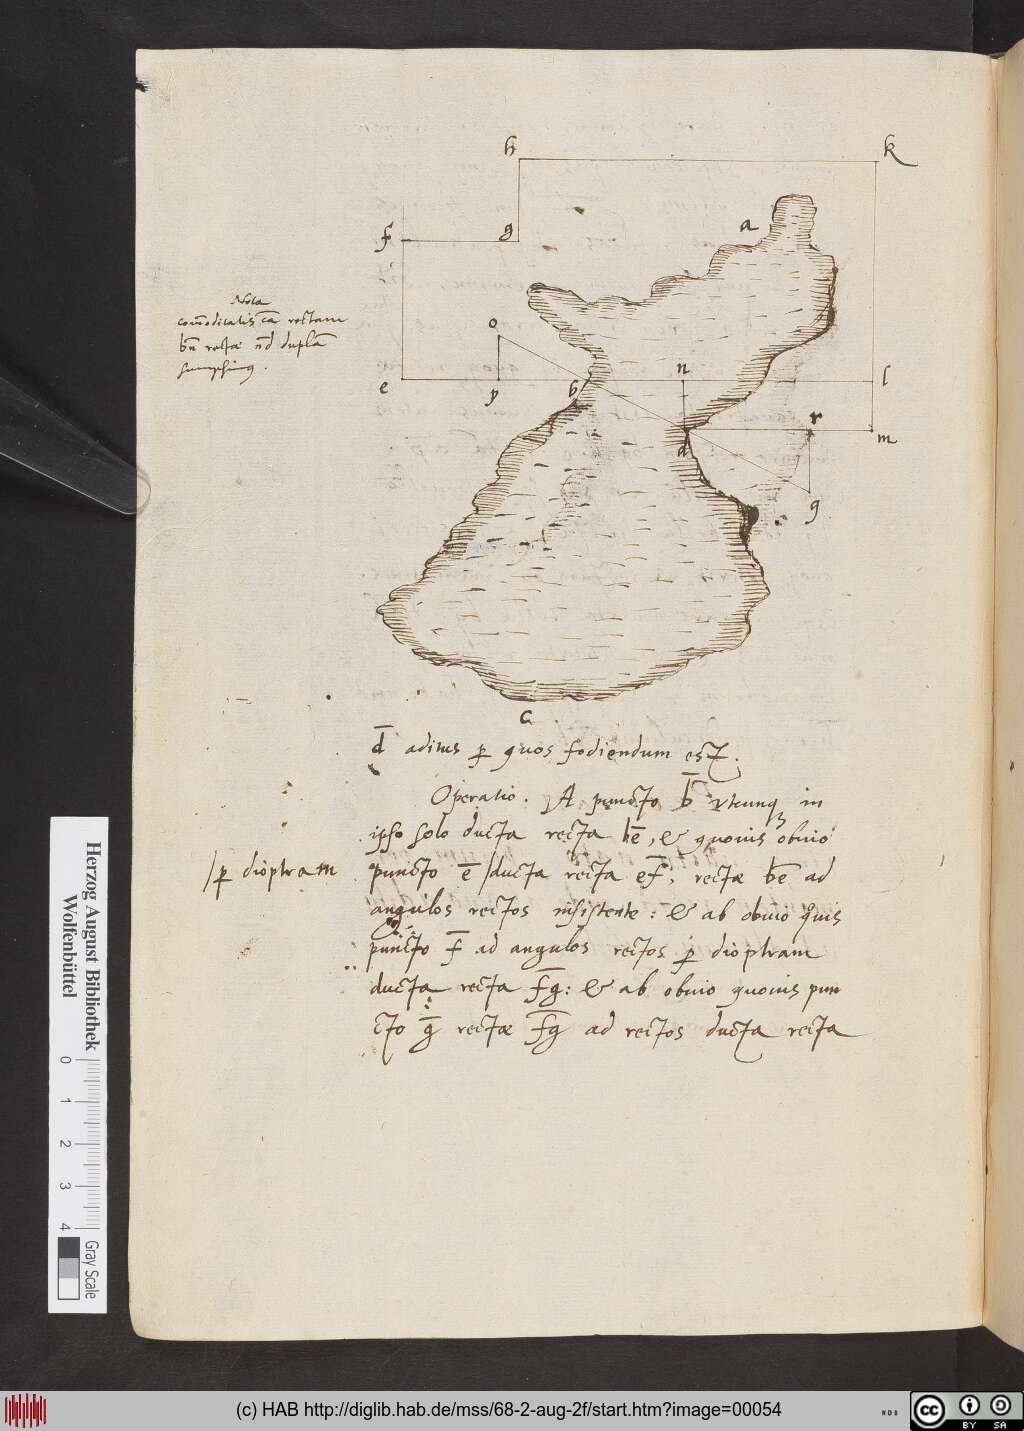 h
k
a
f
g
Nota
com̄oditatis cā rectam
bn̄ rectæ nd̄ duplā
sumpsimus.
o
e
p
b
n
l
r
m
d
q
c
d̄ aditus p̱ quos fodiendum est.
Operatio. A puncto b̄ vtcunq, in
ipso solo ducta recta b̄e, & quouis obuio
/p̱ dioptram
puncto ē /ducta recta ēf, rectæ b̄e ad
angulos rectos insistente: & ab obuio quis
puncto f̄ ad angulos rectos p̱ dioptram
ducta recta f̄g: & ab obuio quouis pun
cto ḡ rectæ f̄g ad rectos ducta recta
Herzog August Bibliothek
Wolfenbüttel
0 1 2 3 4
Gray Scale
(c) HAB http://diglib.hab.de/mss/68-2-aug-2f/start.htm?image=00054
cc BY SA